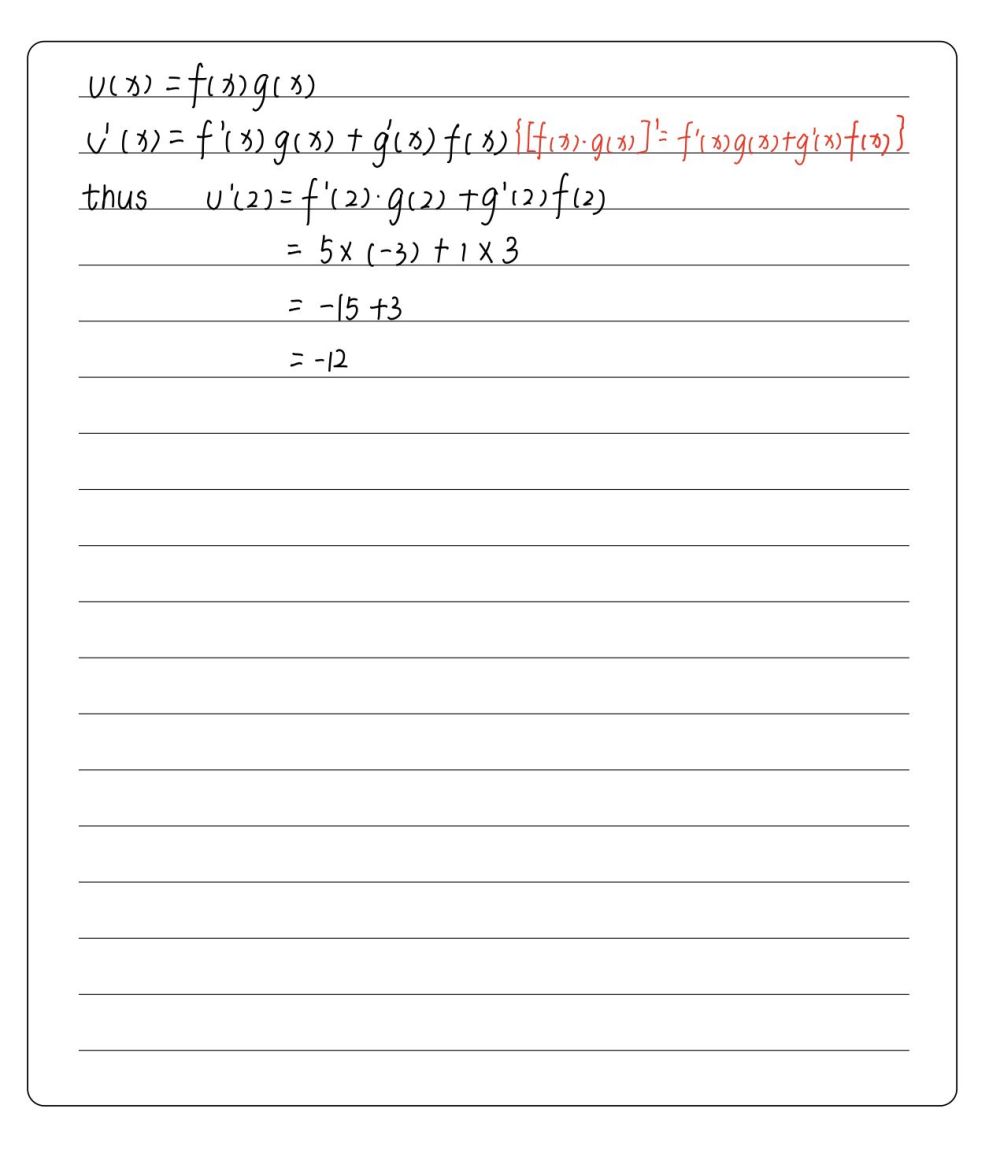 u(x) = f(x)g(x)
u'(x) = f'(x)g(x) + g'(x)f(x) {[f(x)·g(x)]'= f'(x)g(x)+g'(x)f(x)}
thus u'(2) = f'(2)·g(2) + g'(2)f(2)
= 5 × (-3) + 1 × 3
= -15 + 3
= -12